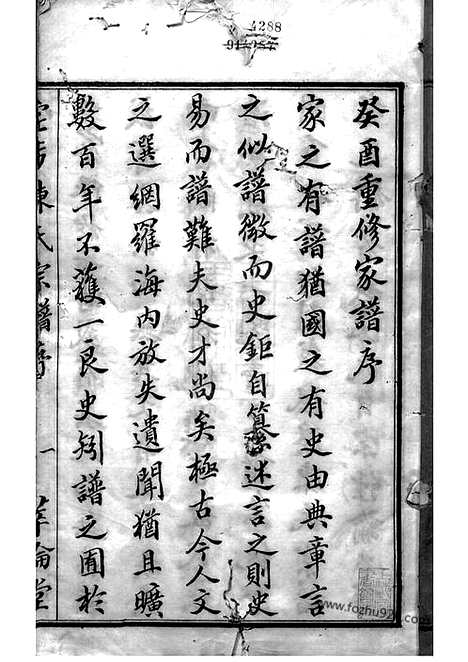 4288
癸酉重修家譜序
家之有譜猶國之有史由典章言
之似譜微而史鉅自纂述言之則史
易而譜難夫史才尚矣極古今人文
之選網羅海内放失遺聞猶且曠
數百年不獲一良史矧譜之囿於
陳氏宗譜序 一 萃倫堂
www.fozhu920.com